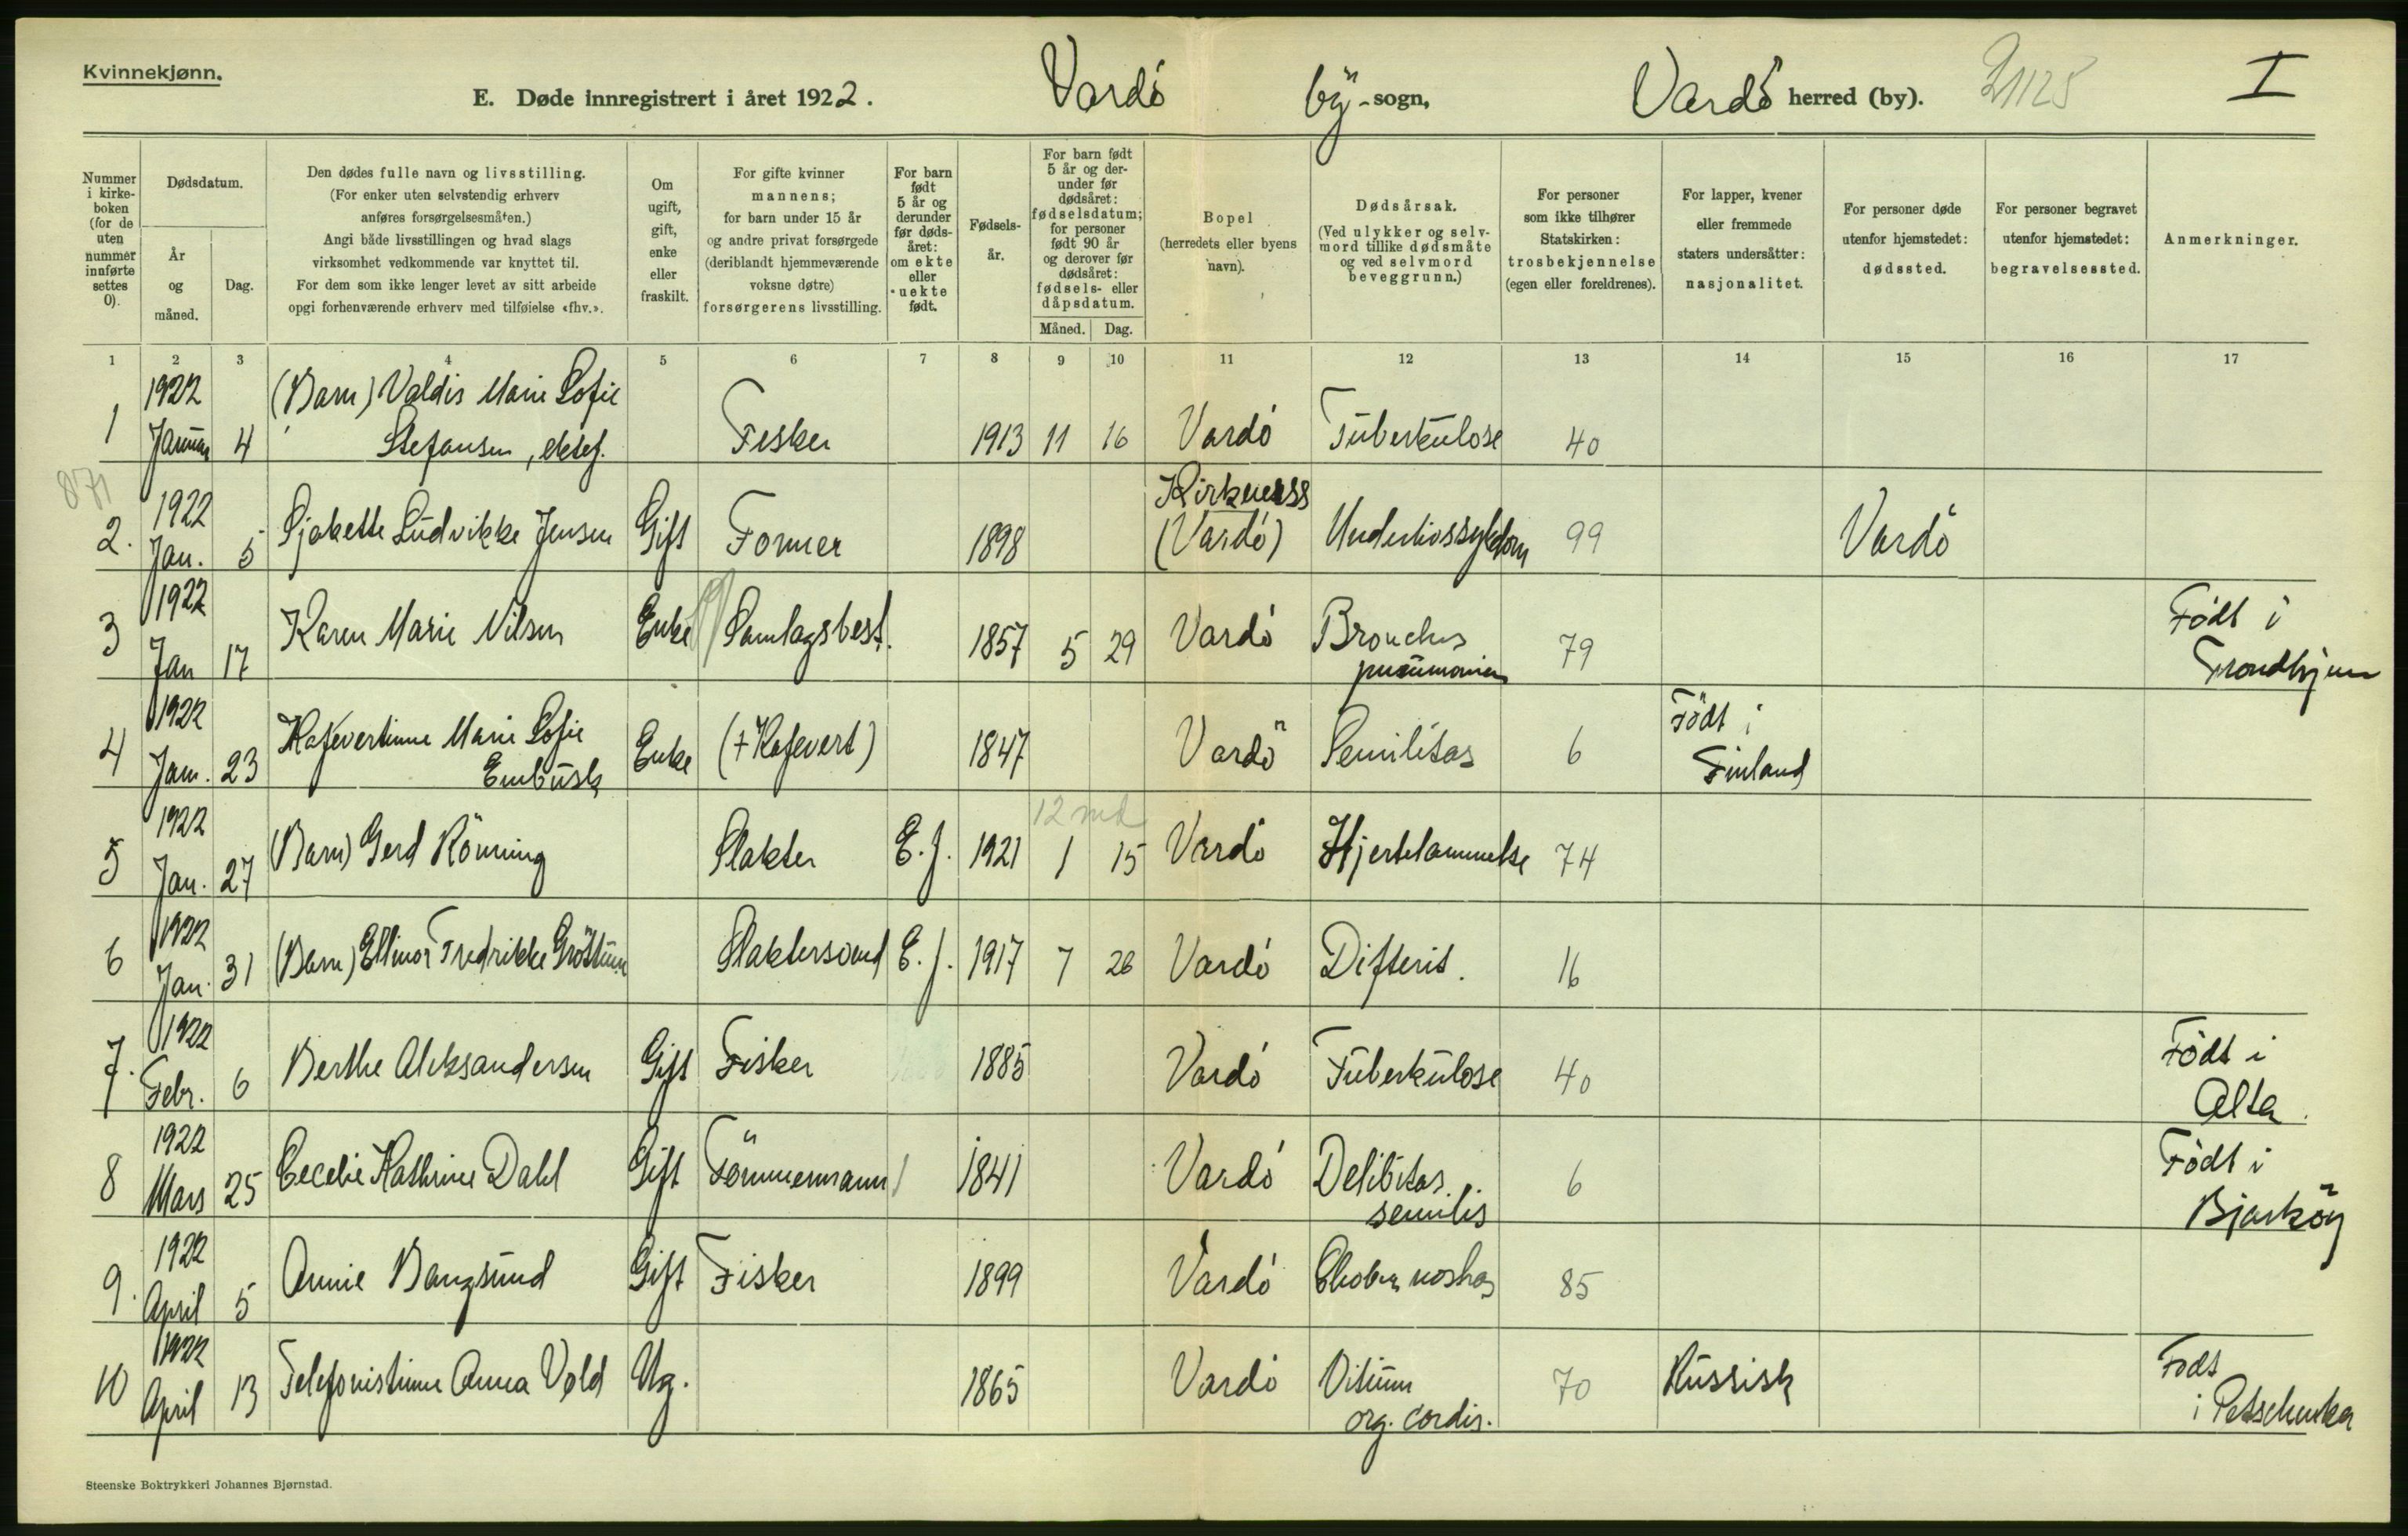 Kvinnekjønn.
E. Døde innregistrert i året 1922. Vardö by-sogn, Vardö herred (by). 21125 I
Nummer i kirkeboken (for de uten nummer innførte settes 0).
Dødsdatum.
År og måned.
Dag.
Den dødes fulle navn og livsstilling.
(For enker uten selvstendig erhverv anføres forsørgelsesmåten.)
Angi både livsstillingen og hvad slags virksomhet vedkommende var knyttet til.
For dem som ikke lenger levet av sitt arbeide opgi forhenværende erhverv med tilføielse «fhv.».
Om ugift, gift, enke eller fraskilt.
For gifte kvinner mannens; for barn under 15 år og andre privat forsørgede (deriblandt hjemmeværende voksne døtre) forsørgerens livsstilling.
For barn født 5 år og derunder før dødsåret: om ekte eller uekte født.
Fødselsår.
For barn født 5 år og derunder før dødsåret: fødselsdatum; for personer født 90 år og derover før dødsåret: fødsels- eller dåpsdatum.
Måned. Dag.
Bopel (herredets eller byens navn).
Dødsårsak.
(Ved ulykker og selvmord tillike dødsmåte og ved selvmord beveggrunn.)
For personer som ikke tilhører Statskirken: trosbekjennelse (egen eller foreldrenes).
For lapper, kvener eller fremmede staters undersåtter: nasjonalitet.
For personer døde utenfor hjemstedet: dødssted.
For personer begravet utenfor hjemstedet: begravelsessted.
Anmerkninger.
1 2 3 4 5 6 7 8 9 10 11 12 13 14 15 16 17
1922 (Barn) Valdis Marie Sofie
1 Januar 4 Stefansen, ektef. Fisker 1913 11 16 Vardö Tuberkulose 40
871 1922 Kirkeness
2. Jan. 5 Sjakette Ludvikke Jensen Gift Former 1898 (Vardö) Underlivssykdom 99 Vardö
1922 Født i
3 Jan 17 Karen Marie Nilsen Enke Samlagsbest. 1857 5 29 Vardö Broncho pneumonien 79 Trondhjem
1922 Kafevertinne Marie Sofie Født i
4 Jan. 23 Enbusk Enke (+ Kafevert) 1847 Vardö Senilitas 6 Finland
1922 12 md
5 Jan. 27 (Barn) Gerd Rönning Slakter E. f. 1921 1 15 Vardö Hjertelammelse 74
1922
6 Jan. 31 (Barn) Ellinor Fredrikke Gröttum Slaktersvend E. f. 1917 7 26 Vardö Difterit. 16
1922 Født i
7. Febr. 6 Berthe Aleksandersen Gift Fisker 1885 Vardö Tuberkulose 40 Alta.
1922 Født i
8 Mars 25 Cecelie Kathrine Dahl Gift Tömmermann 1841 Vardö Delibitas senilis 6 Bjarköy
1922
9. April 5 Annie Bangsund Gift Fisker 1899 Vardö 85
1922 Født
10 April 13 Telefonistinne Anna Vold Ug. 1865 Vardö Vitium org. cordis. 70 Russisk i Petschenka
Steenske Boktrykkeri Johannes Bjørnstad.